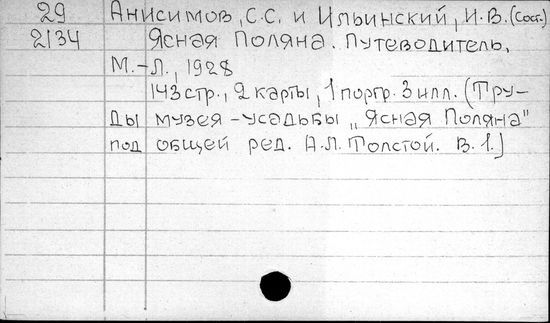 29 Анисимов, С.С. и Ильинский, И.В. (Сост.)
2134 Ясная Поляна. Путеводитель.
М.-Л., 1928
143 стр., 2 карты, 1 портр. 3 илл. (Тру-
ды музея-усадьбы „Ясная Поляна"
под общей ред. А.Л. Толстой. В. 1.)